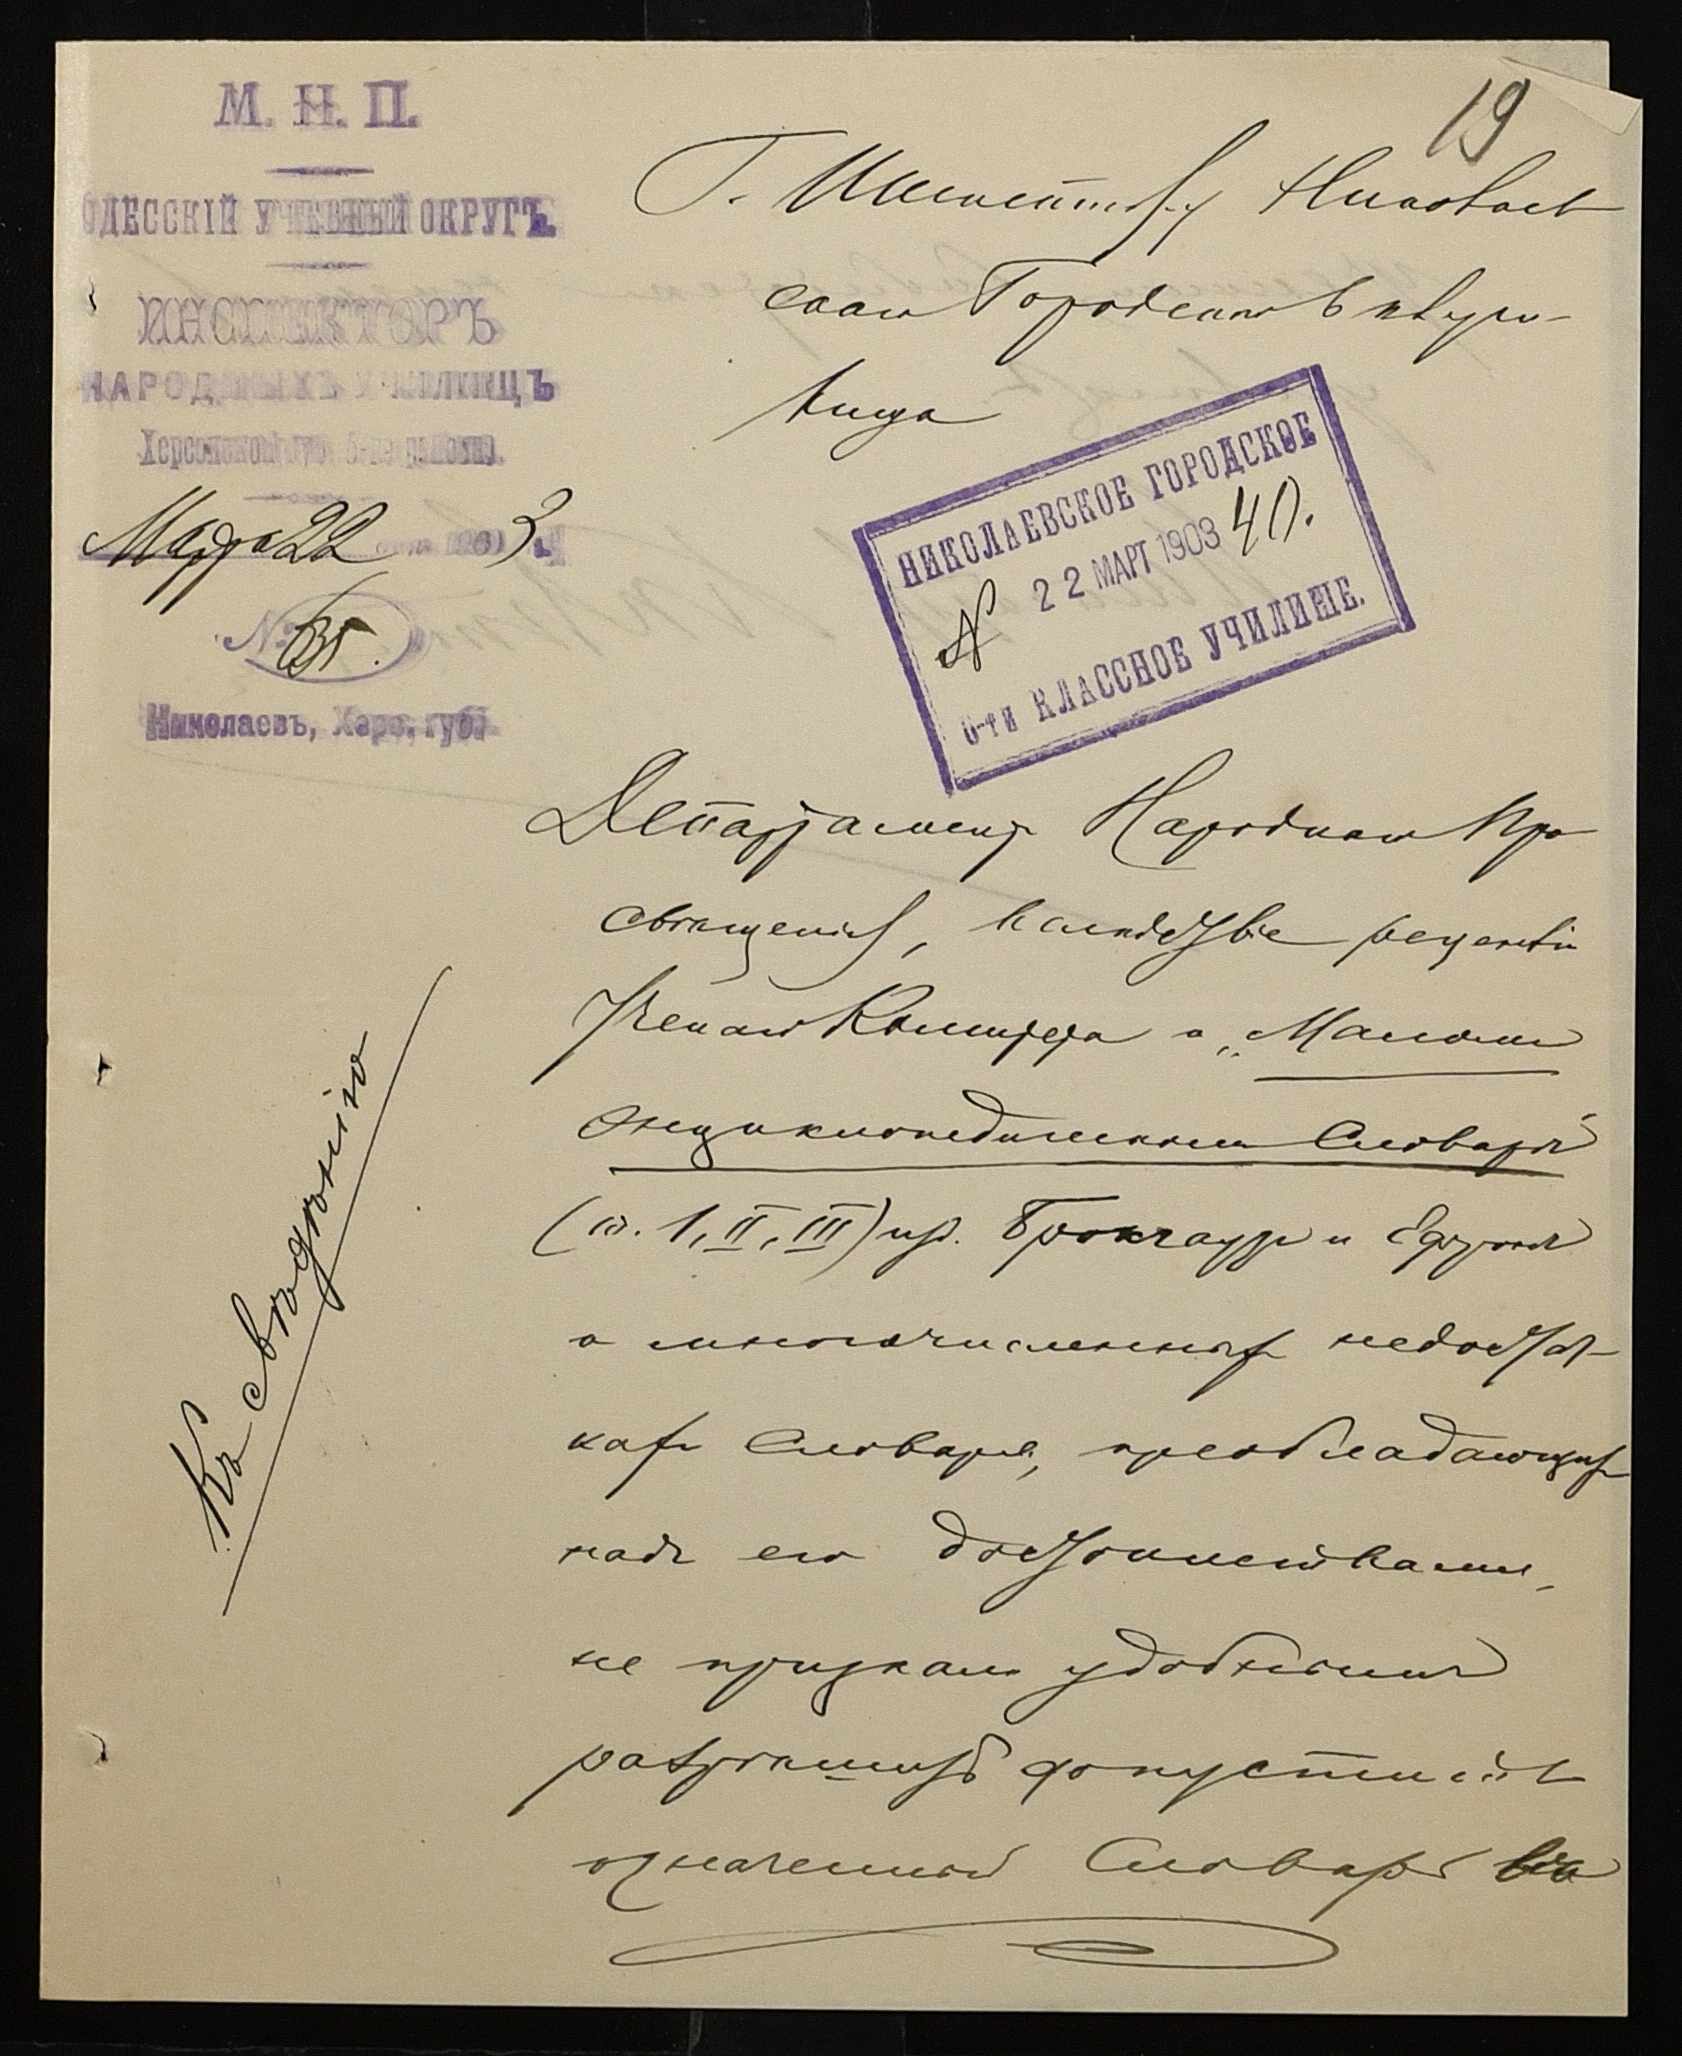 19
М. Н. П.
ОДЕССКІЙ УЧЕБНЫЙ ОКРУГЪ.
ИНСПЕКТОРЪ
НАРОДНЫХЪ УЧИЛИЩЪ
Херсонской губ. района.
Марта 22 190 3 г.
№ 135.
Николаевъ, Херс. губ.
Г. Инспектору Николаев
скаго Городского учи-
лища
НИКОЛАЕВСКОЕ ГОРОДСКОЕ
N 22 МАРТ 1903 40.
6-ти КЛАССНОЕ УЧИЛИЩЕ.
Департаментъ Народнаго Про
свѣщенія, вслѣдствіе рецензіи
Ученаго Комитета о „Маломъ
энциклопедическомъ Словарѣ"
(в. I, II, III) изд. Брокгаузъ и Ефрона
о многочисленныхъ недостат-
кахъ Словаря, преобладающихъ
надъ его достоинствами,
не призналъ удобнымъ
разрѣшить допустить
означенный Словарь въ
Къ свѣдѣнію